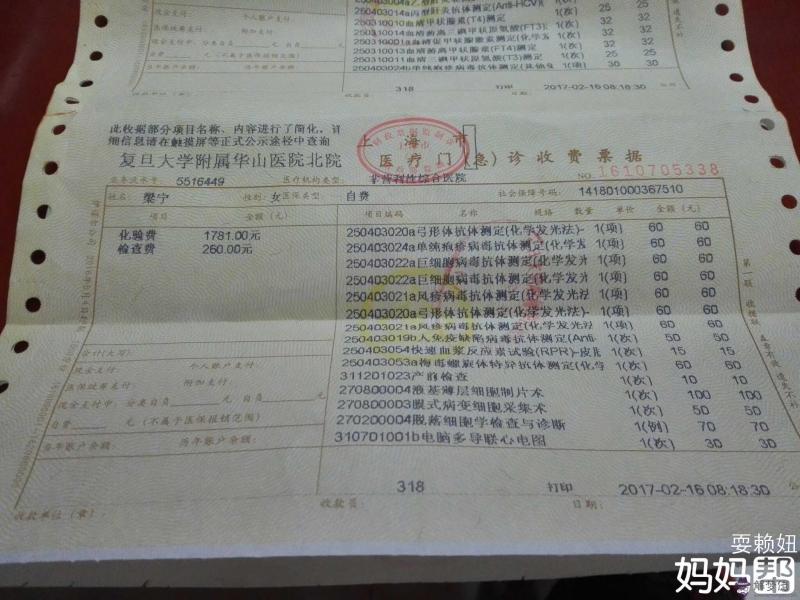 250403014a丙型肝炎抗体测定(Anti-HCV)( 1(次) 25 25
250310010血清甲状腺素(T4)测定 1(次) 32 32
250310014血清游离三碘甲状原氨酸(FT3) 1(次) 32 32
250310001a血清促甲状腺素测定(化学发 1(次) 32 32
250310013血清游离甲状腺素(FT4)测定 1(次) 25 25
250310011血清三碘甲状原氨酸(T3)测定 1(次)
250403024b单纯疱疹病毒抗体测定(其他免 1(项) 30 30
个人账户支付
附加支付
现金支付中，分类自负 元 自负 元
自费 元 (不属于医保报销范围)
历年账户余额:
收款单位(章): 收款员: 318 打印 2017-02-16 08:18:30
遗失不补
此收据部分项目名称、内容进行了简化，详
细信息请在触摸屏等正式公示途径中查询
上海市
复旦大学附属华山医院北院 医疗门(急)诊收费票据
NO. 1610705338
5516449 医疗机构类型: 非营利性综合医院
姓名: 梁宁 性别: 女 医保类型: 自费 社会保障号码: 141801000367510
项目 金额(元) 项目编码 名称 规格 数量 单价 金额(元)
化验费 1781.00元
检查费 260.00元
250403020a弓形体抗体测定(化学发光法)- 1(项) 60 60
250403024a单纯疱疹病毒抗体测定(化学发 1(项) 60 60
250403022a巨细胞病毒抗体测定(化学发光 1(项) 60 60
250403022a巨细胞病毒抗体测定(化学发光 1(项) 60 60
250403021a风疹病毒抗体测定(化学发光法 1(项) 60 60
250403020a弓形体抗体测定(化学发光法)- 1(项) 60 60
250403021a风疹病毒抗体测定(化学发光法 1(项) 60 60
250403019b人免疫缺陷病毒抗体测定(Anti- 1(次) 50 50
250403054快速血浆反应素试验(RPR)-皮肤 1(次) 15 15
250403053a梅毒螺旋体特异抗体测定(化学 1(次) 60 60
311201023产前检查 1(次) 10 10
270800004液基薄层细胞制片术 1(次) 100 100
270800003膜式病变细胞采集术 1(次) 50 50
270200004脱落细胞学检查与诊断 1(例) 70 70
310701001b电脑多导联心电图 1(次) 30 30
合计(大写)
现金支付: 个人账户支付
医保统筹支付: 附加支付:
现金支付中，分类自负 元 自负 元
自费 元 (不属于医保报销范围)
当年账户余额: 历年账户余额:
第一联 收据联
遗失不补
318 打印 2017-02-16 08:18:30
收款单位(章): 收款员: 日期:
耍赖妞
妈妈帮